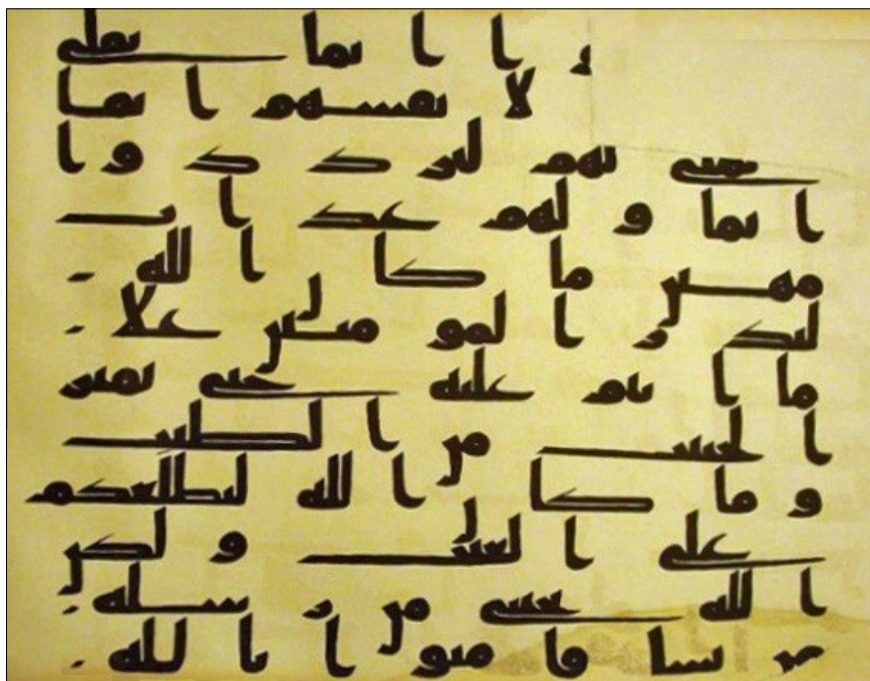 وا انما نملى
لا نفسهم انما
نملى لهم ليزددوا
اثما ولهم عذاب
مهين ما كان الله
ليذر المومنين علا
ما انتم عليه حتى يميز
الخبيث من الطيب
وما كان الله ليطلعكم
على الغيب ولكن
الله يجتبى من رسله
من يشا فامنوا بالله